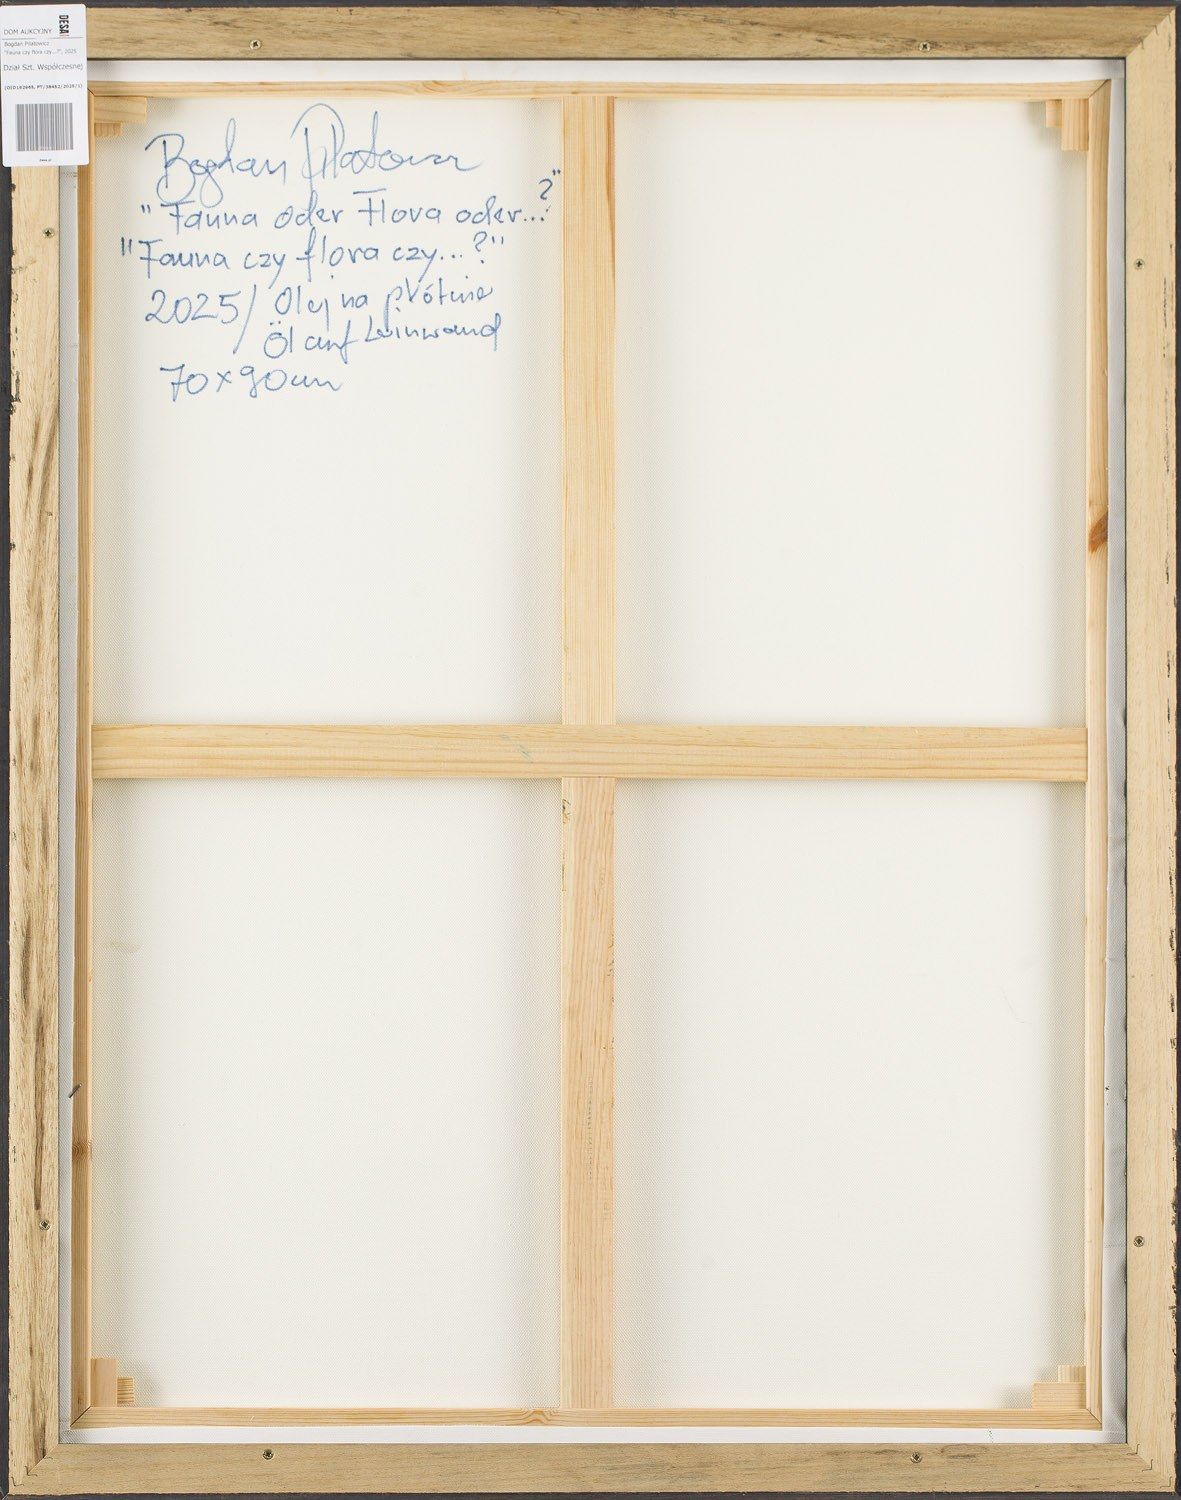 DESA
DOM AUKCYJNY
Bogdan Pilatowicz
"Fauna czy flora czy...?", 2025
Dział Szt. Współczesnej
Bogdan
"Fauna oder Flora oder...?"
"Fauna czy flora czy...?"
2025/ Olej na płótnie
Öl auf Leinwand
70x90cm